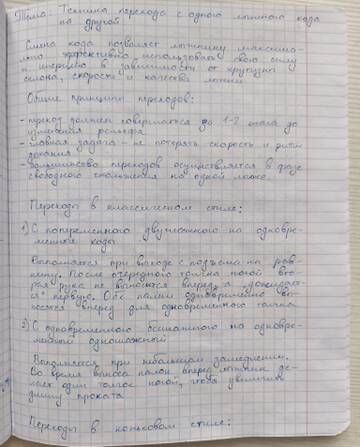 Тема: Техника перехода с одного лыжного хода
на другой
Смена хода позволяет лыжнику максима-
льно эффективно использовать свою силу
и инерцию в зависимости от крутизны
склона, скорости и качества лыжни
Общие принципы переходов:
-переход должен совершаться за 1-2 шага до
изменения рельефа
-главная задача - не потерять скорость и ритм
дыхания
-большинство переходов осуществляется в фазе
свободного скольжения на одной лыже.
Переходы в классическом стиле:
1) С попеременного двухшажного на одновре-
менные ходы
Выполняется при выходе с подъема на рав-
нину. После очередного толчка ногой вто-
рая рука не выносится вперед, а "дожидает-
ся" первую. Обе палки одновременно вы-
носятся вперед для одновременного толчка
2) С одновременного бесшажного на одновре-
менный одношажный
Выполняется при небольшом замедлении.
Во время выноса палок вперед лыжник де-
лает один толчок ногой, чтобы увеличить
длину проката
Переходы в коньковом стиле: